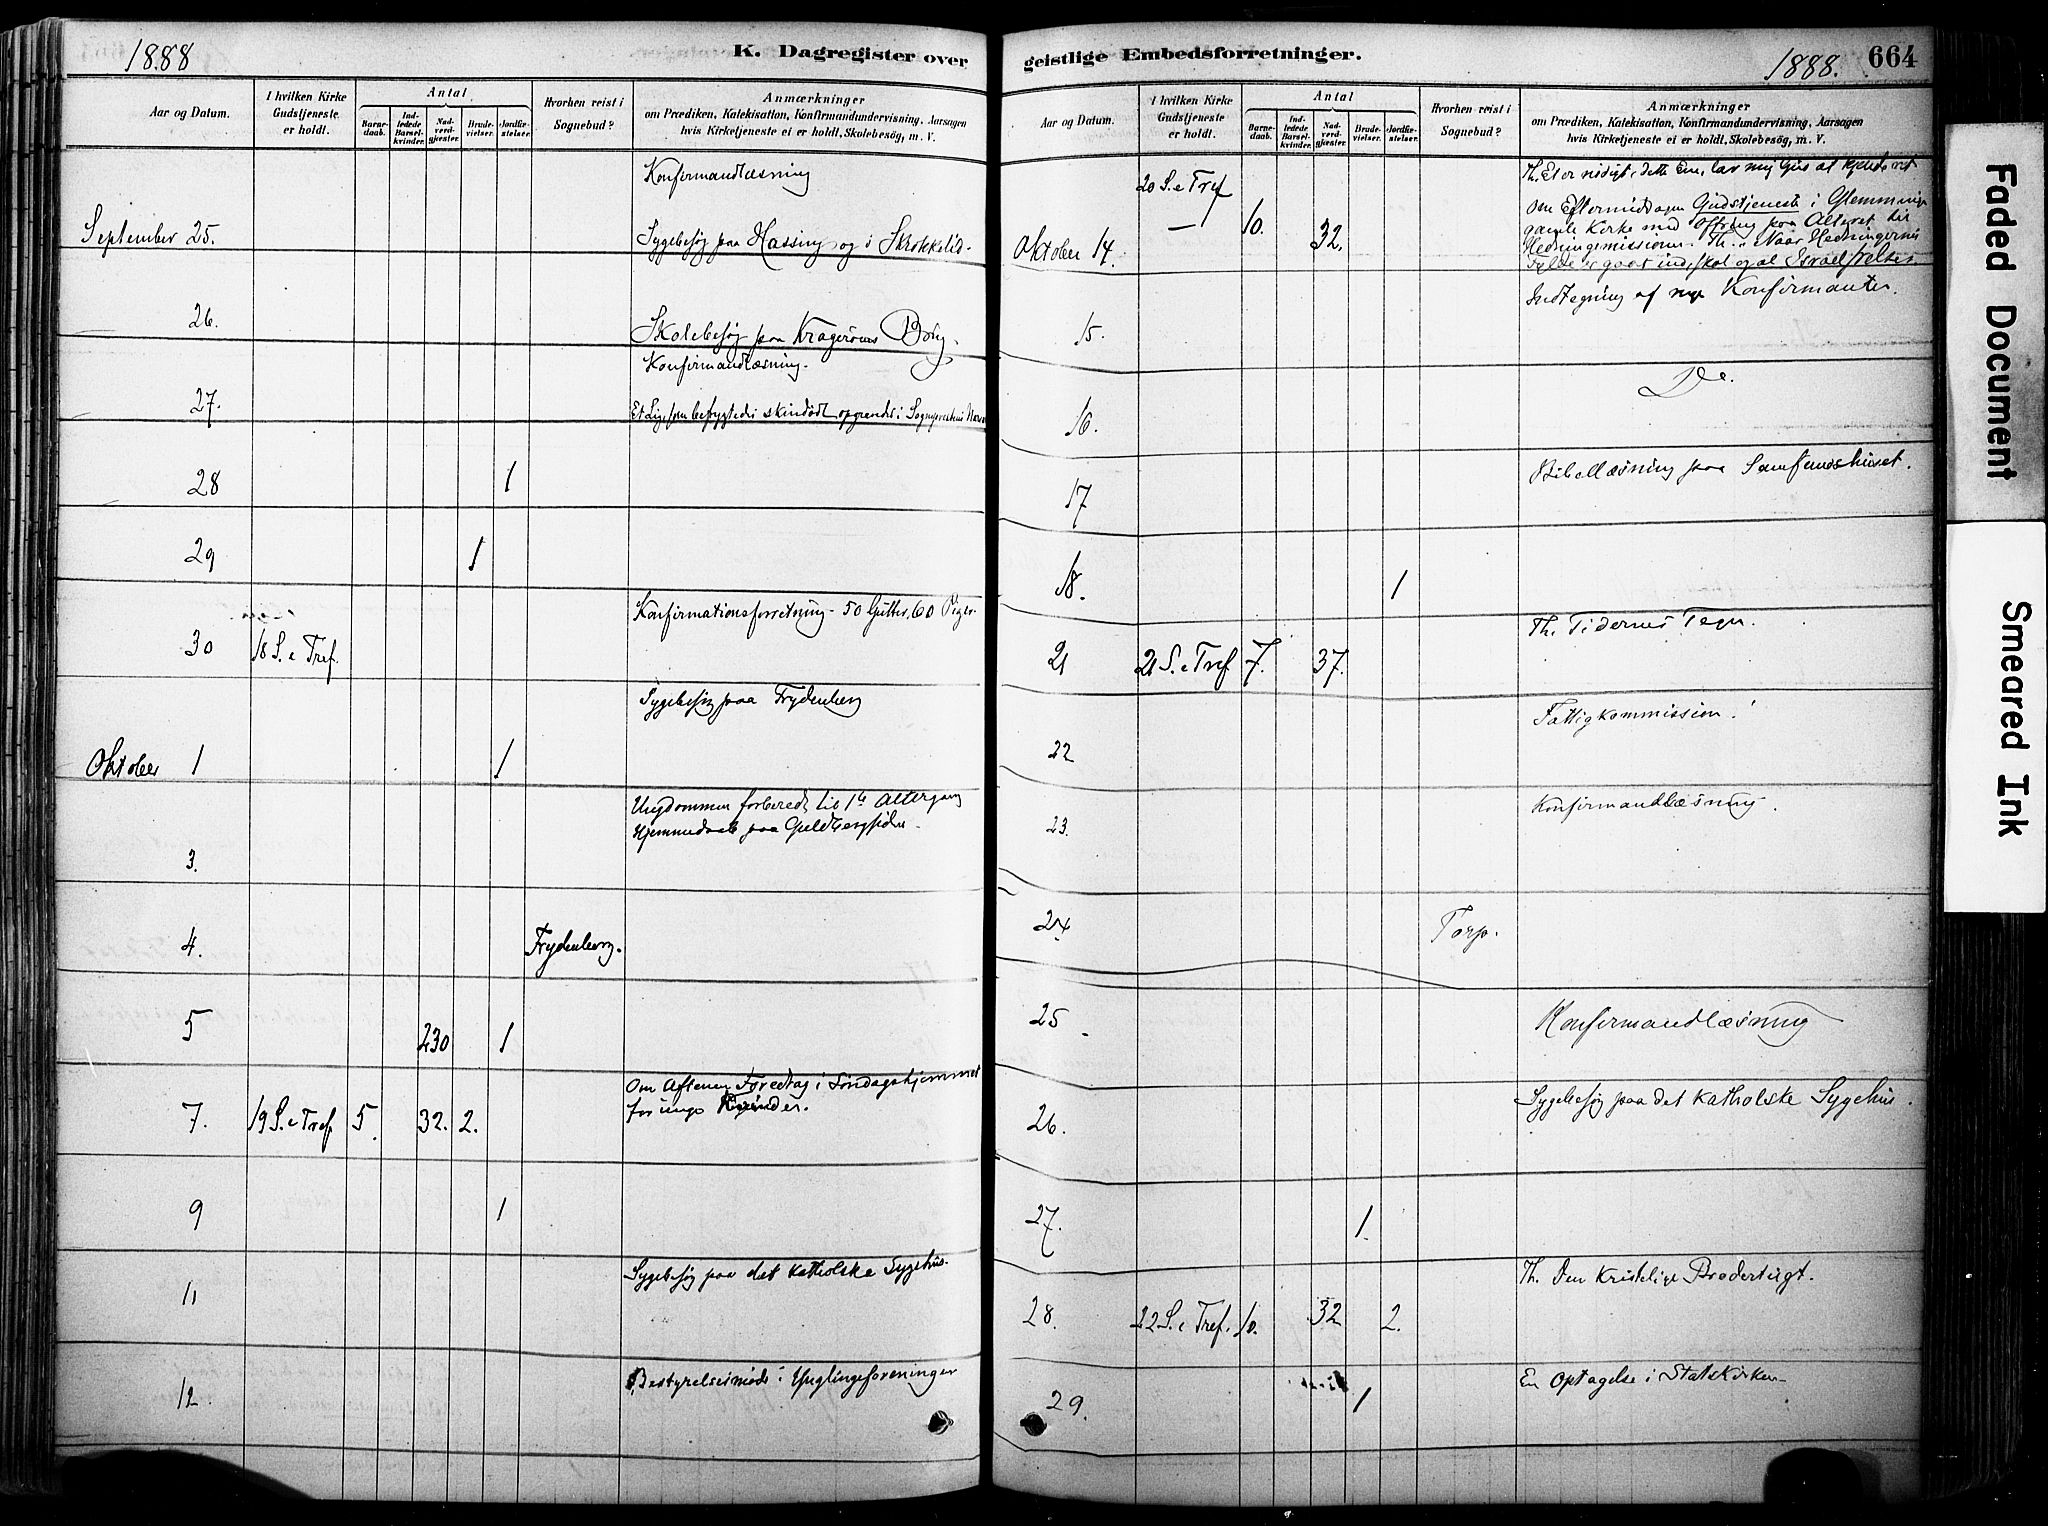 1888
K. Dagregister over
Aar og Datum.
I hvilken Kirke Gudstjeneste er holdt.
Antal
Barnedaab.
Indledede Barselkvinder.
Nadverdgjester.
Brudevielser.
Jordfæstelser.
Hvorhen reist i Sognebud?
Anmærkninger
om Prædiken, Katekisation, Konfirmandundervisning, Aarsagen
hvis Kirketjeneste ei er holdt, Skolebesög, m. V.
Konfirmandlæsning
September 25. Sygebesøg paa Hassing og i Skrokkelid.
26. Skolebesøg paa Kragerønes Borg.
Konfirmandlæsning.
27. Et Lig som befrygtedes skindødt opgrendes i Sogneprestens Nærv
28 1
29 1
Konfirmationsforretning – 50 Gutter, 60 Piger.
30 18 S. e Tref.
Sygebesøg paa Frydenberg
Oktober 1 1
Ungdommen forberedt til 1te Altergang
Hjemmedaab paa Guldbergsiden.
3.
4. Frydenberg.
5 230 1
Om Aftenen Foredrag i Søndagshjemmet
for unge Kvinder.
7. 19 S. e Tref 5. 32. 2.
9 1
Sygebesøg paa det katholske Sygehus.
11
Bestyrelsesmøde i Ynglingeforeningen
12.
geistlige Embedsforretninger.
1888.
664
Aar og Datum.
I hvilken Kirke Gudstjeneste er holdt.
Antal
Barnedaab.
Indledede Barselkvinder.
Nadverdgjester.
Brudevielser.
Jordfæstelser.
Hvorhen reist i Sognebud?
Anmærkninger
om Prædiken, Katekisation, Konfirmandundervisning, Aarsagen
hvis Kirketjeneste ei er holdt, Skolebesög, m. V.
Th. Et er nødigt, dette Ene, lær mig Gud at kjende ret
20 S. e Tref
Om Eftermiddagen Gudstjeneste i Glemminge
gamle Kirke med Offring paa Alteret til
Oktober 14. 10. 32. Hedningemissionen. Th. „Naar Hedningernes
Fylde er gaaet ind, skal og al Israel frelses.
Indtegning af nye Konfirmanter.
15.
Do.
16.
Bibellæsning paa Samfundshuset.
17
18. 1
Th. Tidernes Tegn.
21 21 S. e Tref 7. 37.
Fattigkommission!
22
Konfirmandlæsning.
23.
24 Torp.
25 Konfirmandlæsning
Sygebesøg paa det katholske Sygehus.
26.
27. 1.
Th. Den kristelige Brodertugt.
28. 22 S. e Tref. 10. 32 2.
En Optagelse i Statskirken
29. 1
Faded Document
Smeared Ink